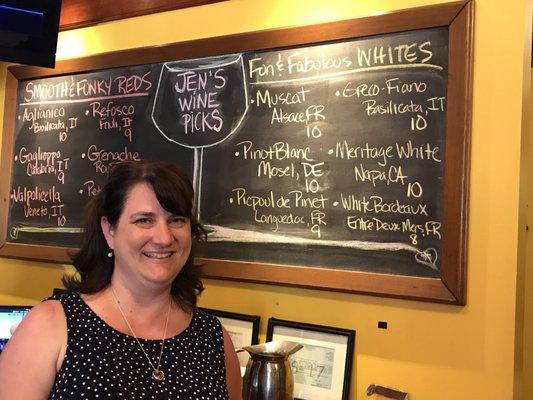 SMOOTH & FUNKY REDS
• Aglianico
Basilicata, IT
10
• Gaglioppo
Calabria, IT
9
• Valpolicella
Veneto, IT
10
• Refosco
Friuli, IT
9
• Grenache
JEN'S
WINE
PICKS
Fun & Fabulous WHITES
• Muscat
Alsace, FR
10
• Pinot Blanc
Mosel, DE
10
• Picpoul de Pinet
Languedoc, FR
9
• Greco-Fiano
Basilicata, IT
10
• Meritage White
Napa, CA
10
• White Bordeaux
Entre Deux Mers, FR
8